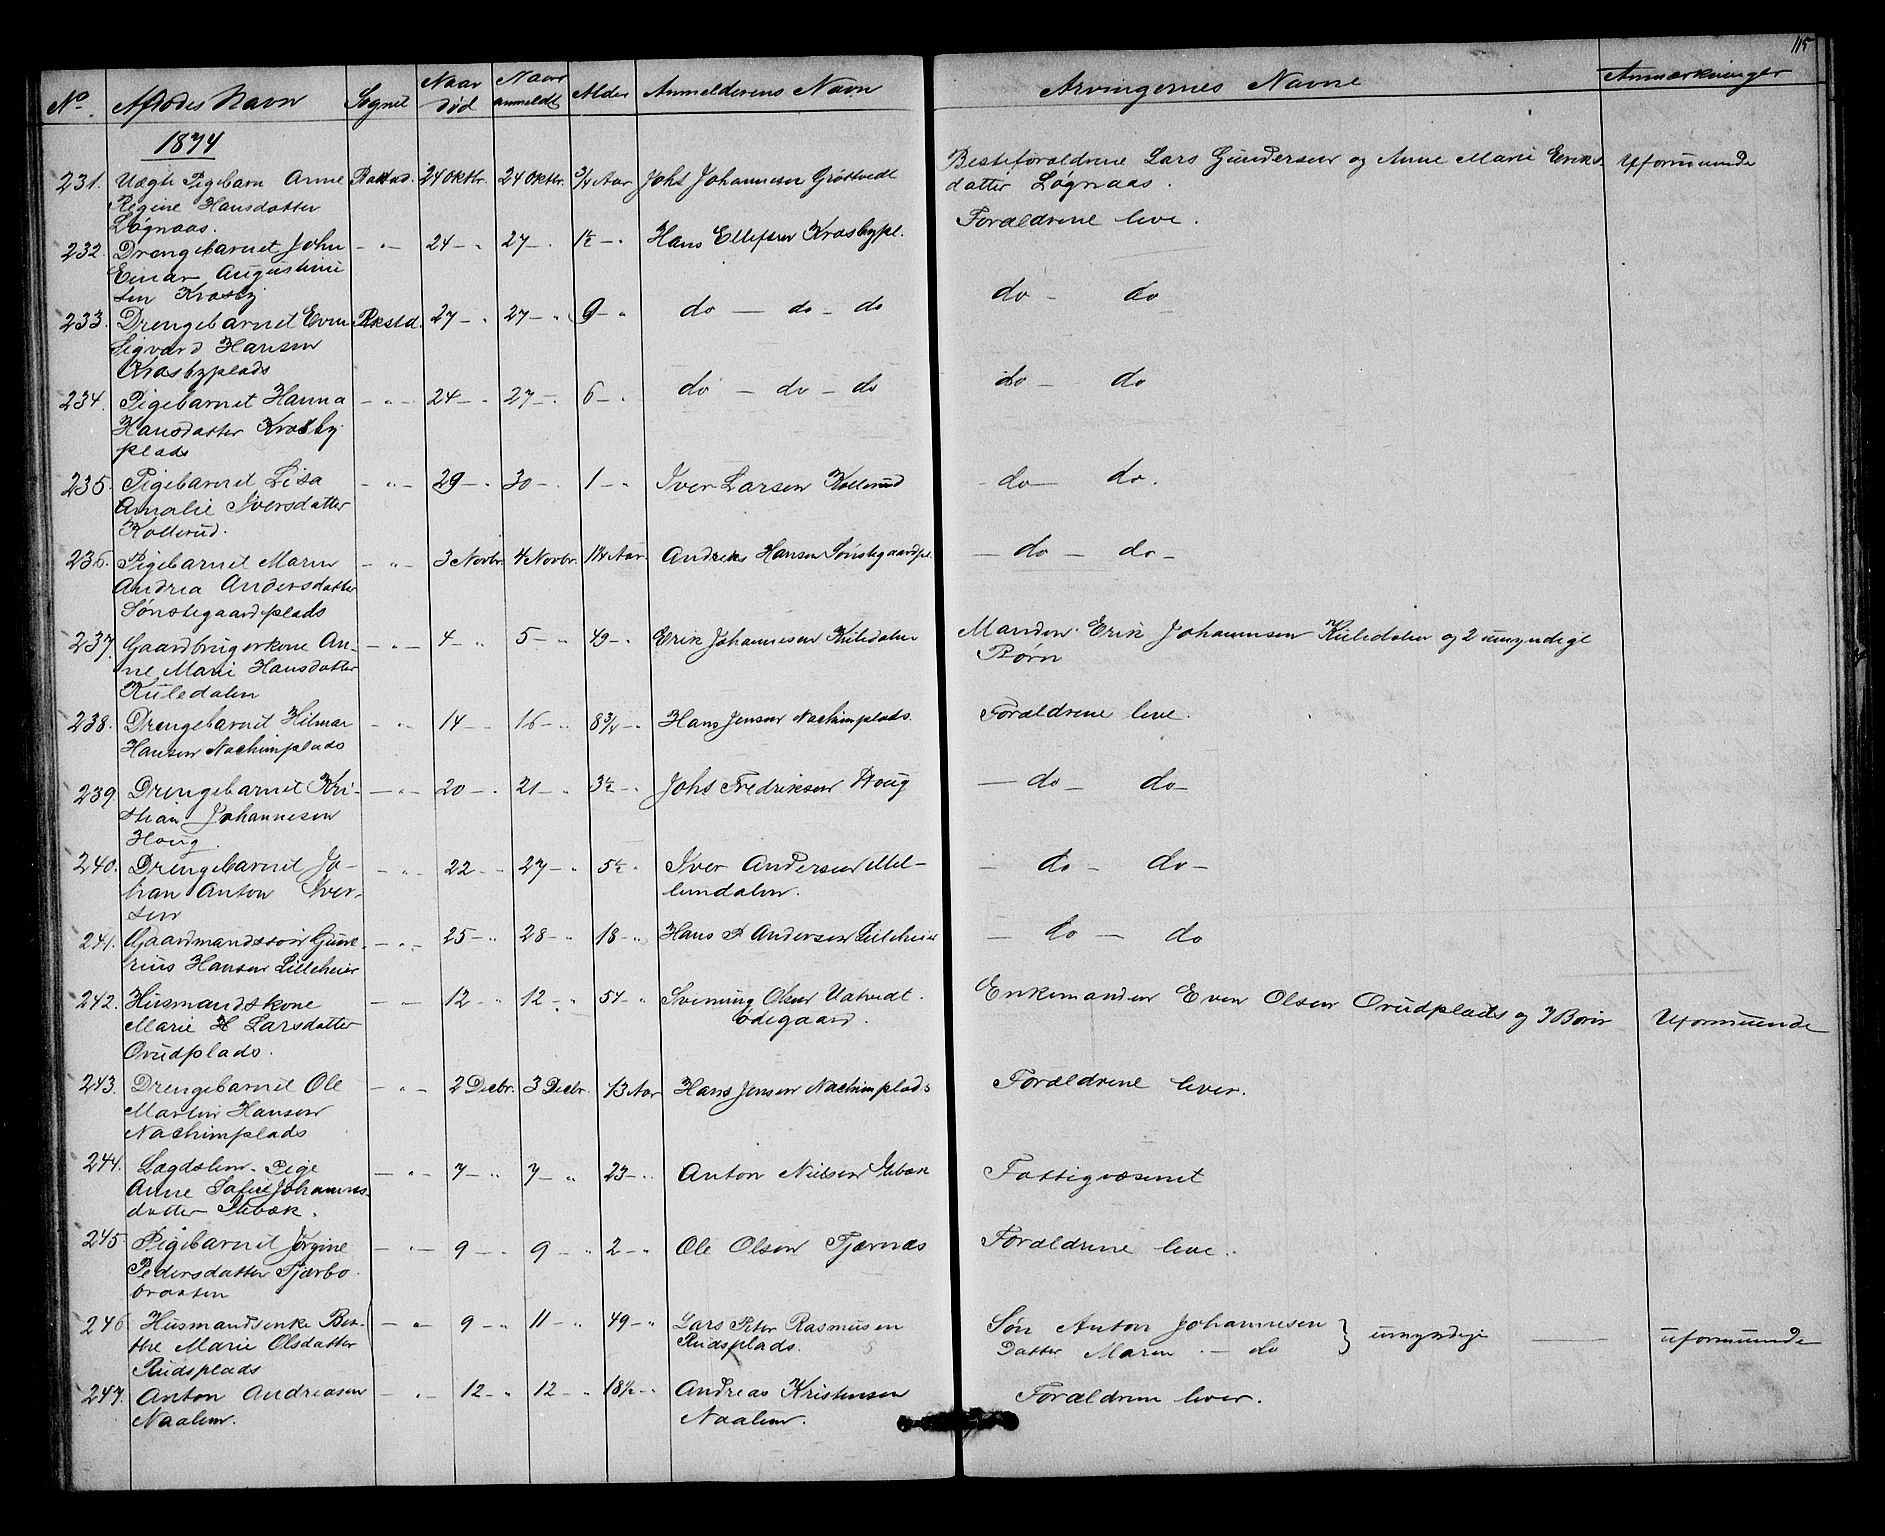 115
No. Afdødes Navn Sognet Naar død Naar anmeldt Alder Anmelderens Navn Arvingernes Navne Anmærkninger
1874
231. Uægte Pigebarn Anne 24 Oktbr. 24 Oktbr. 3/4 Aar Johs Johannesen Grøttvedt Besteforældrene Lars Gundersen og Anne Marie Eriks- Uformuende
Regine Hansdatter datter Løgnaas.
Løgnaas.
232. Drengebarnet John - „ - 24 - „ 27 - „ 1½ - „ Hans Ellefsen Kræsbypl. Forældrene leve.
Einar Augustini
sen Kræsby
233. Drengebarnet Even Rakstd. 27 - „ 27 - „ 9 - „ do - do - do do - do
Sigvard Hansen
Kræsbyplads
234. Pigebarnet Hanna - „ - 24 - „ 27 - „ 6 - „ do - do - do do - do
Hansdatter Kræsby-
plads
235. Pigebarnet Lisa - „ - 29 - „ 30 - „ 1 - „ Iver Larsen Kollerud - do - do.
Amalie Iversdatter
Kollerud.
236. Pigebarnet Maren - „ - 3 Novbr. 4 Novbr. Aar Andreas Hansen Sønstegaardpl. - do - do -
Andrea Andersdatter
Sønstegaardplads
237. Gaardbrugerkone An- - „ - 4 - „ 5 - „ 49 - „ Erik Johannesen Kuledalen Manden Erik Johannesen Kuledalen og 2 umyndige
ne Marie Hansdatter Børn
Kuledalen
238. Drengebarnet Hilmar - „ - 14 - „ 16 - „ 8 3/4 - „ Hans Jensen Nachimplads. Forældrene leve.
Hansen Nachimplads
239. Drengebarnet Kri- - „ - 20 - „ 21 - „ 3½ - „ Johs Fredriksen Houg - do - do -
stian Johannesen
Houg.
240. Drengebarnet Jo- - „ - 22 - „ 27 - „ 5½ - „ Iver Andersen Mel- - do - do -
han Anton Iver- lemdalen.
sen
241. Gaardmandssøn - „ - 25 - „ 28 - „ 18 - „ Hans P Andersen Lilleheier - do - do
Hansen Lilleheier
242. Husmandskone - „ - 12 - „ 12 - „ 54 - „ Svening Olsen Uatvedt Enkemanden Even Olsen Ovudplads og 3 Børn Uformuende
Marie H Larsdatter Ødegaard.
Ovudplads.
243. Drengebarnet Ole - „ - 2 Decbr. 3 Decbr. 13 Aar Hans Jensen Nachimplads Forældrene lever.
Martin Hansen
Nachimplads
244. Lægdslem- Pige - „ - 7 - „ 7 - „ 23 - „ Anton Nielsen Stebæk Fattigvæsenet
Anne Sofie Johannes-
datter Stebæk.
245. Pigebarnet Jørgine - „ - 9 - „ 9 - „ 2 - „ Ole Olsen Tjærnæs Forældrene leve.
Pedersdatter Tjærbo-
braaten
246. Husmandsenke Ber- - „ - 9 - „ 11 - „ 49 - „ Lars Peter Rasmusen Søn Anton Johannesen } umyndige — uformuende
the Marie Olsdatter Rudsplads. Datter Maren - do
Rudsplads
247. Anton Andreasen - „ - 12 - „ 12 - „ 18½ - „ Andreas Kristensen Forældrene lever.
Naalem. Naalem.